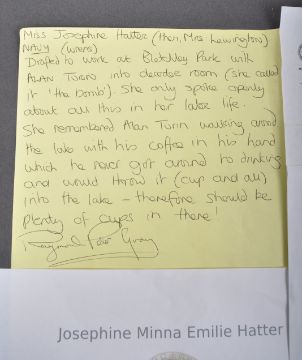 Miss Josephine Hatter (then, Mrs. Lewington)
NAVY (wrens)
Drafted to work at Bletchley Park with
ALAN TURING into decode room (she called
it 'the bomb'). She only spoke openly
about all this in her later life.
She remembered Alan Turin walking around
the lake with his coffee in his hand
which he never got around to drinking
and would throw it (cup and all)
into the lake – therefore should be
plenty of cups in there!
Raymond Peter
Josephine Minna Emilie Hatter